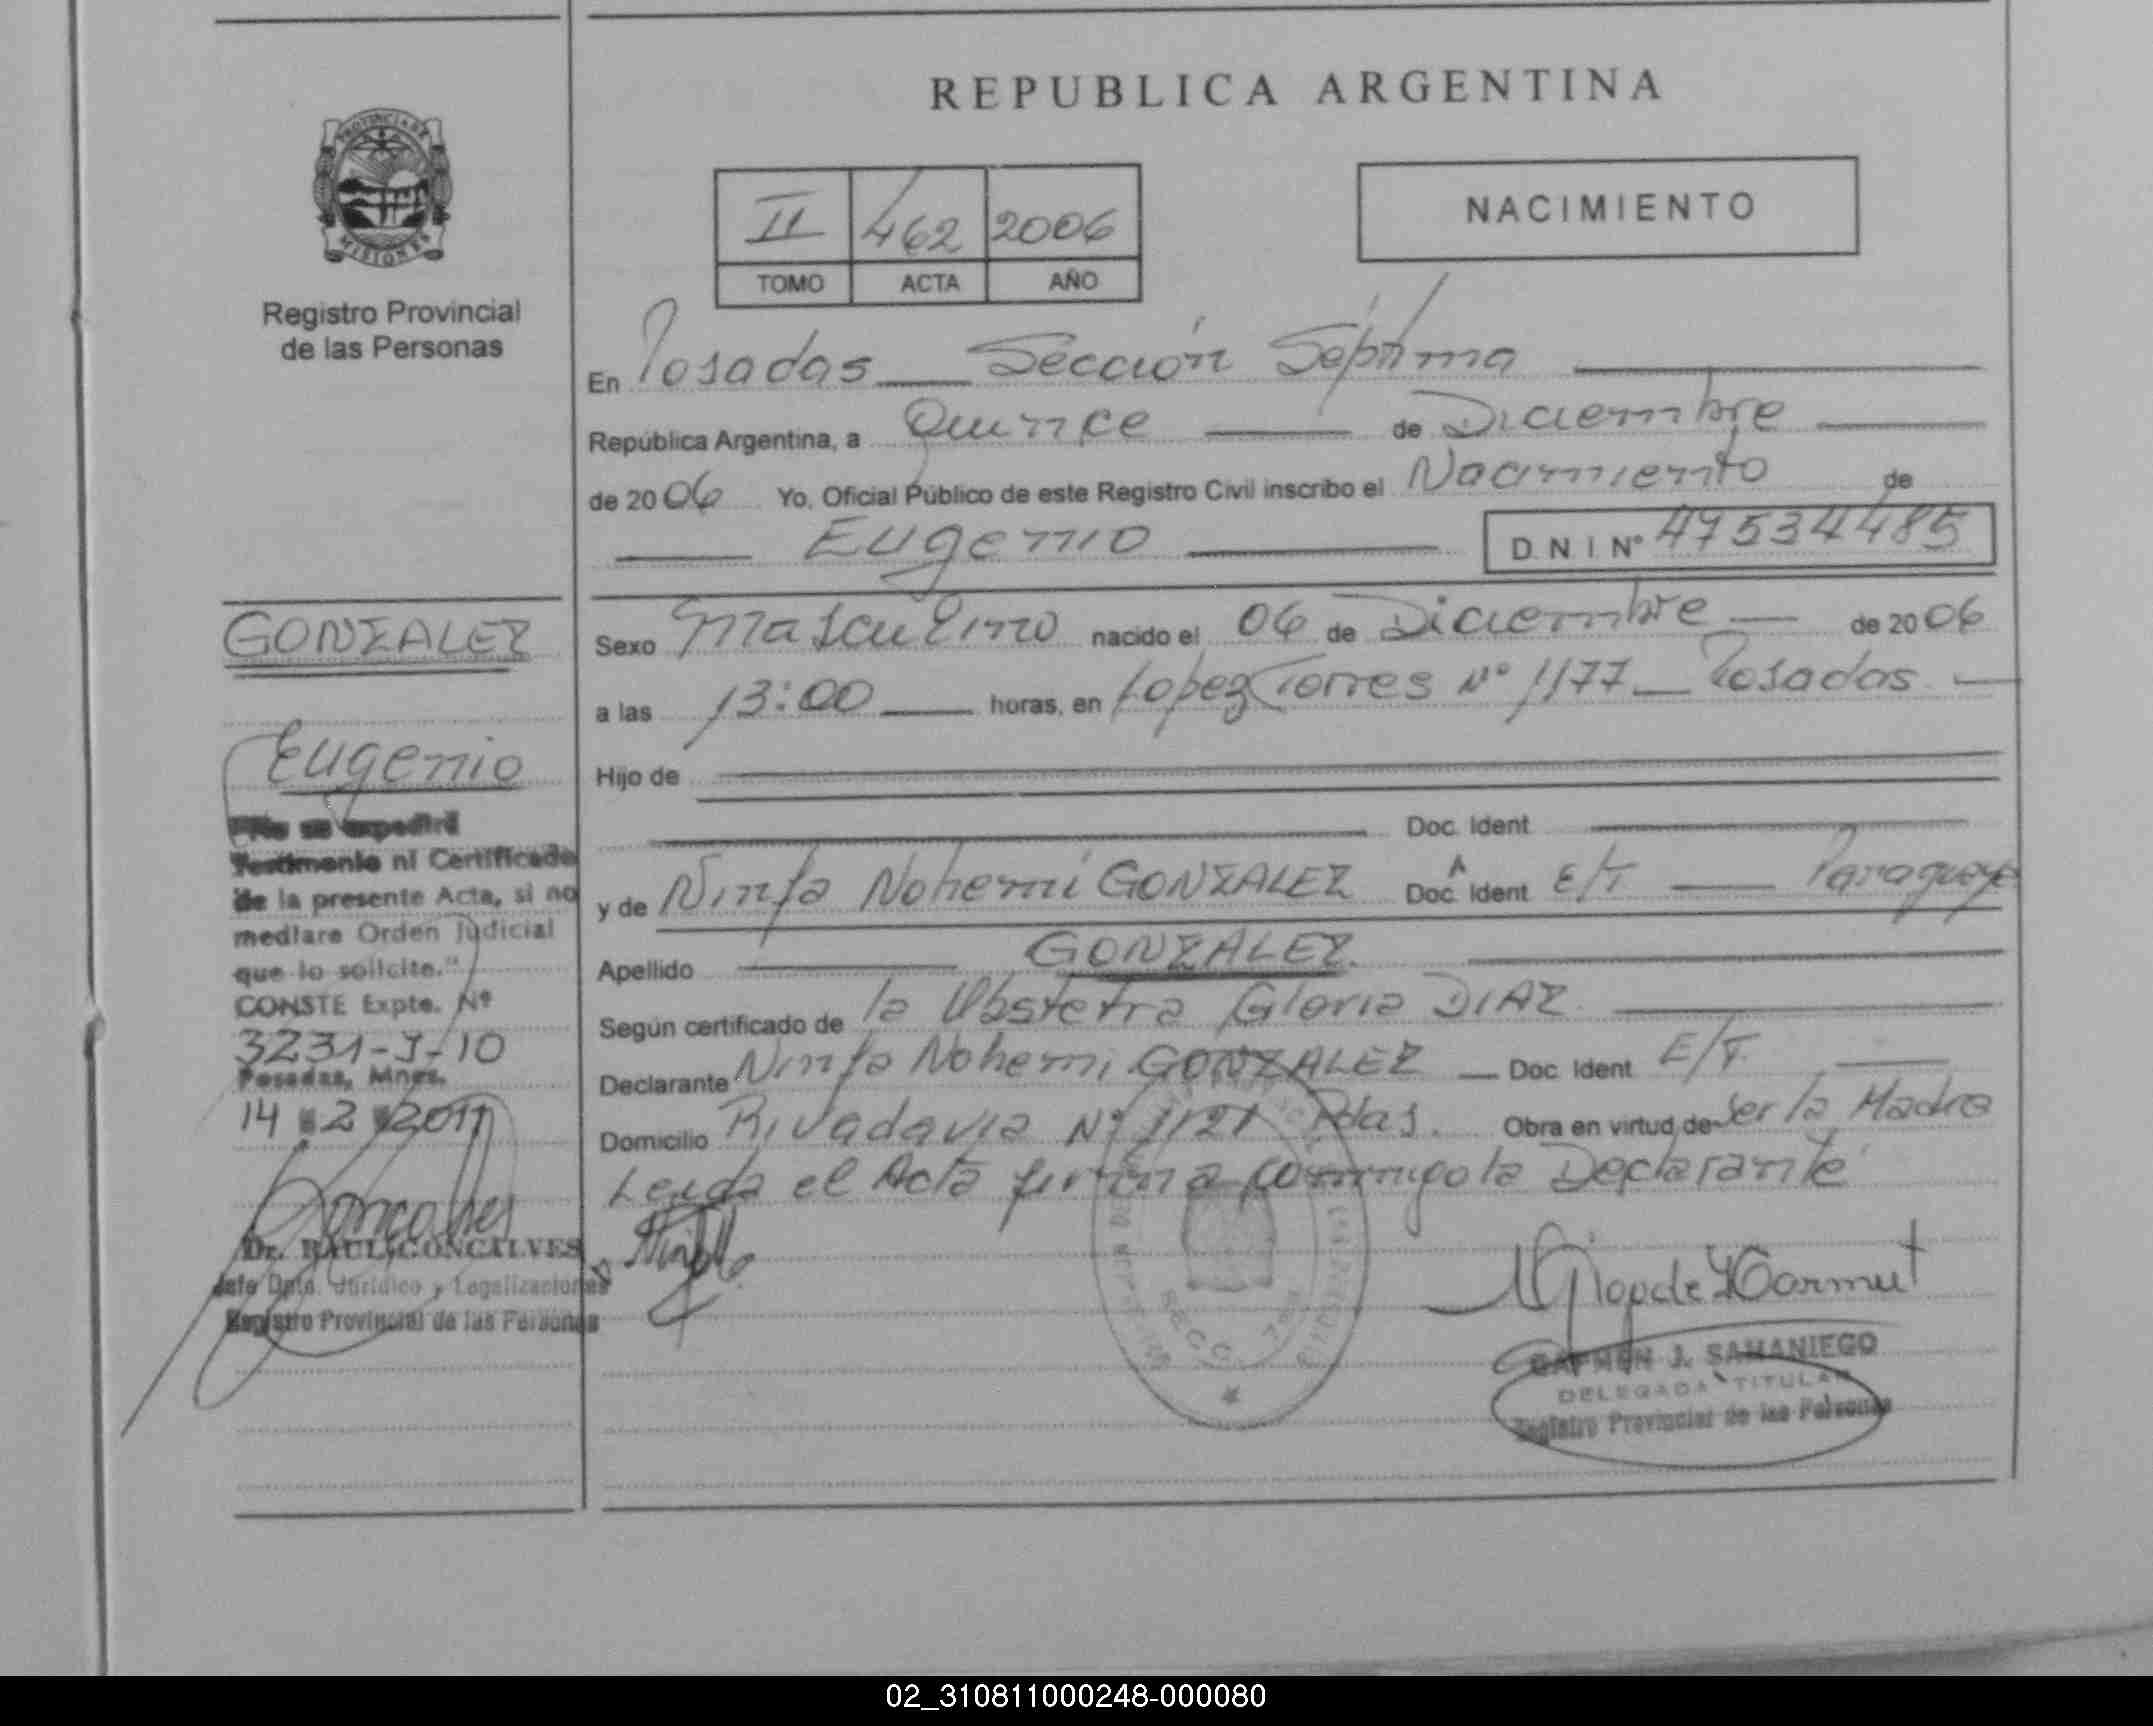 REPUBLICA ARGENTINA
PROVINCIA DE
MISIONES
Registro Provincial
de las Personas
II 462 2006
TOMO ACTA AÑO
NACIMIENTO
En Posadas Sección Séptima
República Argentina, a Quince de Diciembre
de 2006 Yo, Oficial Público de este Registro Civil inscribo el Nacimiento de
Eugenio D N I Nº 47534485
GONZALEZ
Eugenio
"No se expedirá
Testimonio ni Certificado
de la presente Acta, si no
mediare Orden Judicial
que lo solicite."
CONSTE Expte. Nº
3231-J-10
Posadas, Mnes.
14 2 2011
Dr. RAUL GONCALVES
Jefe Dpto. Jurídico y Legalizaciones
Registro Provincial de las Personas
Sexo Masculino nacido el 06 de Diciembre de 2006
a las 13:00 horas, en Lopez Torres Nº 1177 Posadas
Hijo de
Doc. Ident
y de Ninfa Nohemí GONZALEZ Doc. Ident E/T Paraguaya
Apellido GONZALEZ
Según certificado de la Obstetra Gloria DIAZ
Declarante Ninfa Nohemi GONZALEZ Doc Ident E/T
Domicilio Rivadavia Nº 1121 Pdas. Obra en virtud de Ser la Madre
Leida el Acta firma conmigo la Declarante
SECC. 7ª
CARMEN J. SAMANIEGO
DELEGADA TITULAR
Registro Provincial de las Personas
02_310811000248-000080